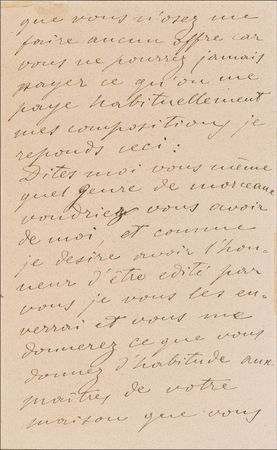 que vous n'osez me
faire aucun offre car
vous ne pourrez jamais
payer ce qu'on me
paye habituellement
mes compositions je
reponds ceci :
Dites moi vous même
quel genre de morceaux
voudriez vous avoir
de moi, et comme
je desire avoir l'hon-
neur d'être edité par
vous je vous les en-
verrai et vous me
donnerez ce que vous
donnez d'habitude aux
maîtres de votre
maison que vous